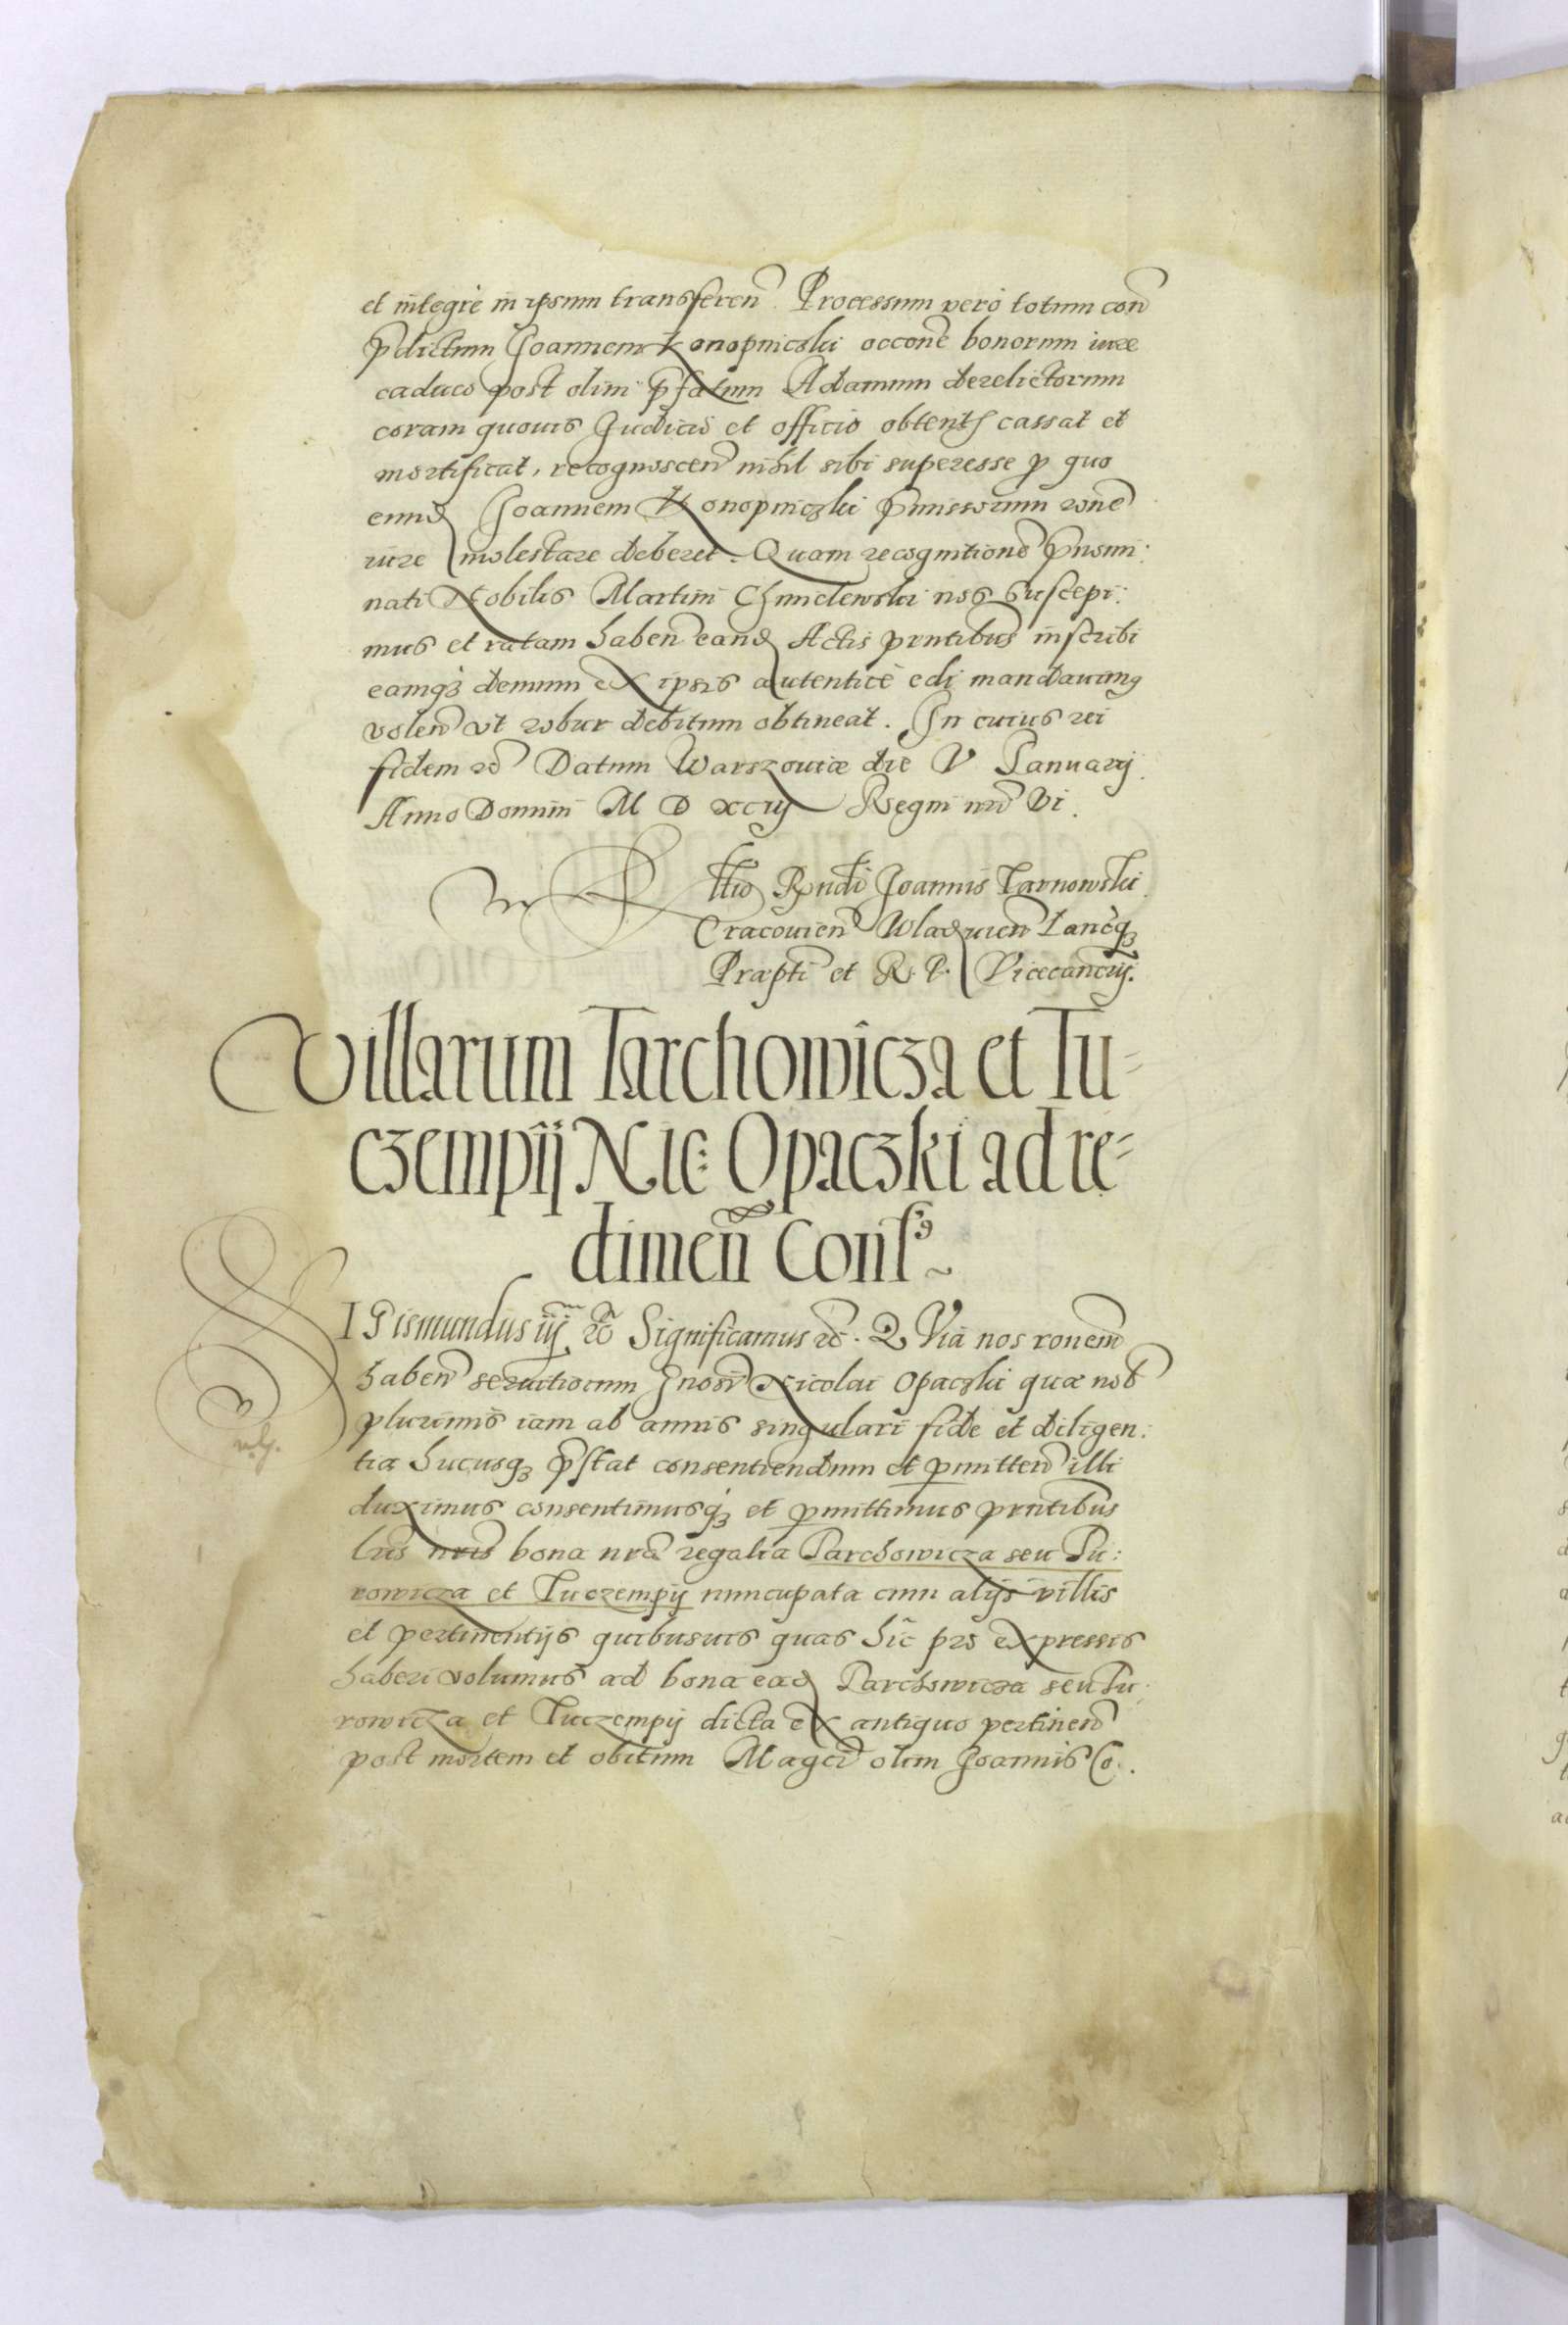 et integrè in ipsum transferen̄. Processum verò totum con̄
p̄dictum Joannem Konopniczki occone̅ bonorum iure
caduco post olim p̄fatum Adamum derelictorum
coram quouis Judicio et officio obtent̄ cassat et
mortificat, recognoscen̄ nihil sibi superesse p̱ quo
eund̄ Joannem Konopniczki p̄missorum rōne
iure molestare deberet. Quam recognitionē p̄nomi:
nati Nobilis Martini Chmielewski nos suscepi:
mus et ratam haben̄ eand̄ Actis pr̄ntibus inscribi
eamqꝫ demum ex ipsis autenticè edi mandauimꝰ
volen̄ vt robur debitum obtineat. In cuius rei
fidem ꝛc̄ Datum Warszouiæ die V Januarij
Anno Domini M D XCIIJ Regni nr̄i VI.
Rl̄tio Rn̄di Joannis Tarnowski
Cracouien̄ Wladᵢuien̄ Lanc̄qꝫ
Præpti̅ et R. P. Vicecancrij.
Villarum Tarchowicza et Tu-
czempij Nic: Opaczki ad re-
dimen̄ Consꝰ
SIGismundus iij ꝛc̄ Significamus ꝛc̄. QVia nos ronem̄
haben̄ seruitiorum Gn̄osi Nicolai Opaczki quæ nob̄
plurimis iam ab annis singulari fide et diligen:
tia hucusqꝫ p̄stat consentiendum et p̱mitten̄ illi
duximus consentimusqꝫ et p̱mittimus pr̄ntibus
lr̄is nr̄is bona nr̄a regalia Tarchowicza seu Tu:
rowicza et Tuczempij nuncupata cum alijs villis
et pertinentijs quibusuis quas hic pro expressis
haberi volumus ad bona ead̄ Tarchowicza seu Tu:
rowicza et Tuczempij dicta ex antiquo pertinen̄
post mortem et obitum Magci̅ olim Joannis Co: